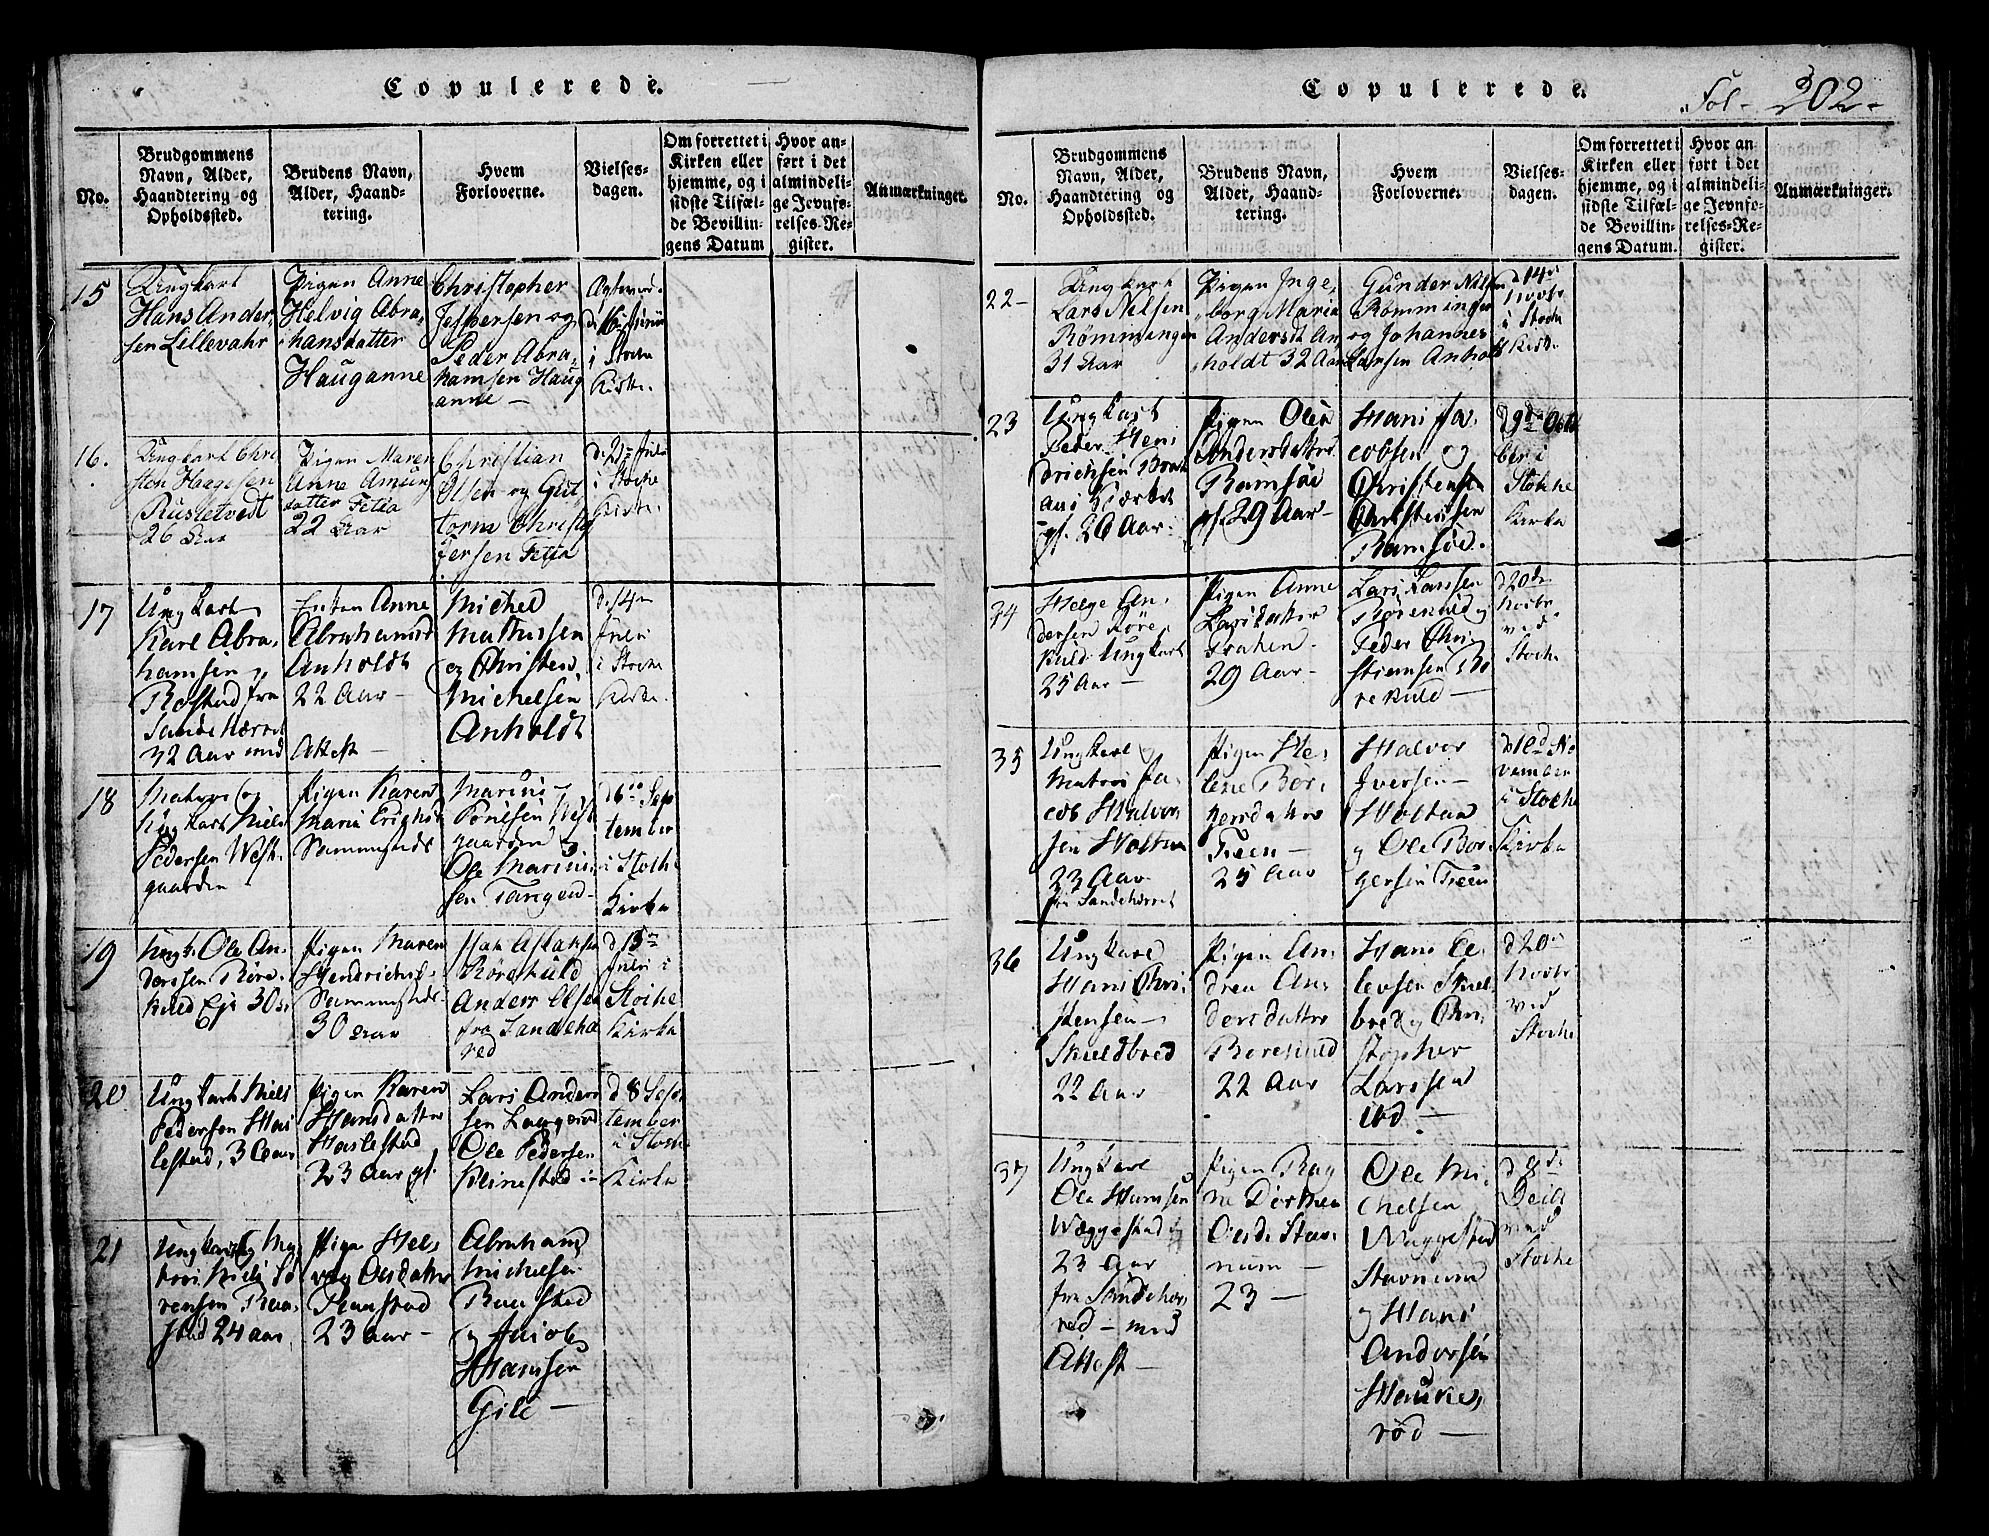 Copulerede.
No.
Brudgommens
Navn, Alder,
Haandtering og
Opholdssted.
Brudens Navn,
Alder, Haand-
tering.
Hvem
Forloverne.
Vielses-
dagen.
Om forrettet i
Kirken eller
hjemme, og i
sidste Tilfæl-
de Bevillin-
gens Datum
Hvor an-
ført i det
almindeli-
ge Jevnfø-
relses-Re-
gister.
Anmærkninger.
15
Ungkarl
Hans Ander,
sen Lillevahr
Pigen Anne
Helvig Abra,
hansdatter
Hauganne
Christopher
Jespersen og
Peder Abra,
hamsen Haug
anne —
i Stocke
Kirke.
16.
Ungkarl Chri
sten Haagesen
Rustetvedt
26 Aar
Pigen Maren
Anne Amun
datter Fetia
22 Aar
Christian
Olsen og Gut
torm Christo
fersen Fetia
i Stocke
Kirke.
17
Ungkarl
Karl Abra,
hamsen
Rostad fra
Sandehærred
32 Aar med
Enken Anne
Abrahamsd
Anholdt
22 Aar —
Attest —
Michel
Mathissen
og Christen
Michelsen
Anholdt
d. 14
Juli
i Stocke
Kirke.
18
og
Ungkarl Niels
Pedersen West,
gaarden
Pigen Karen
Maria Erichsd
Sammesteds
Marius
Tönsen West
gaarden
Ole Marius
sen Tangen
d 6 Sep
tember
i Stokke
Kirke
19
Ungk. Ole An,
derssen Röre,
kuld Eje 30
Pigen Maren
Hendrichsd
Sammesteds
30 Aar
Rörekuld
Anders Olsen
fra Sandehæ
red
d 13
Juli i
Stokke
Kirke
20
Ungkarl Niels
Pedersen Has
lestad, 30 aar
Pigen Karen
Hansdatter
Haslestad
23 Aar gl.
Lars Anders
sen
Ole Pedersen
Klinestad
d 8 Sep
tember
i Stocke
Kirke
21
Ungkarl og Ma
tros Niels Sö
rensen Raa,
stad 24 aar
Pigen Hel,
vig Olsdatter
Raastad
23 aar —
Abraham
Michelsen
Raastad
og Jacob
Hansen
Gile —
Copulerede.
Fol - 202 -
No.
Brudgommens
Navn, Alder,
Haandtering og
Opholdssted.
Brudens Navn,
Alder, Haand-
tering.
Hvem
Forloverne.
Vielses-
dagen.
Om forrettet i
Kirken eller
hjemme, og i
sidste Tilfæl-
de Bevillin-
gens Datum.
Hvor an
ført i det
almindeli-
ge Jevnfø-
relses-Re-
gister.
Anmærkninger.
22 -
Ungkarl
Lars Nilsen
Römmingen
31 Aar
Pigen Inge,
borg Maria
Andersdt An
holdt 32 Aar
Gunder Nilsen
Römmingen
og Johannes
Larsen Anholdt
d 14
Novbr
i Stocke
Kirke
23
Ungkarl
Peder Hen
drichsen
gl. 26 Aar.
Pigen Olea
Andersdatter
Ramsöe
gl. 29 Aar —
Hans Ja,
cobsen og
Christen
Christensen
Ramsöe.
d 9 Octo
ber i
Stokke
Kirke
34
Helge An,
dersen Röre,
kuld Ungkarl
25 Aar —
Pigen Anne
Larsdatter
29 Aar —
Lars Larsen
Rörekuld og
Peder Chri,
stiansen Rö
rekuld —
d 20
Novbr
ved
Stocke
35
Ungkarl og
Matros Ja,
cob Halvor
sen Holtan
23 Aar
fra Sandeherret
Pigen He,
lene Bör,
gersdatter
Freen —
25 Aar
Halvor
Iversen —
Holtan
og Ole Bör
gersen Freen
No
vember
i Stocke
Kirke
36
Ungkarl
Hans Chri,
stensen —
Skieldbred
22 Aar
Pigen An,
drea An,
dersdatter
Borekuld
22 Aar
Hans El,
levsen Skiel
bred og Chri
stopher
Larssen
d 20
Novbr
ved
Stocke
37
Ungkarl
Ole Hansen
Wæggestad
23 Aar
fra Sandehær,
red — med
Attest —
Pigen Rag
ne Dorthea
Olsd. Stav,
num —
23 —
Ole Mi,
chelsen
Wæggestad
Stavnum
og Hans
Andersen
Haukes,
röd —
d 8
ved
Stocke